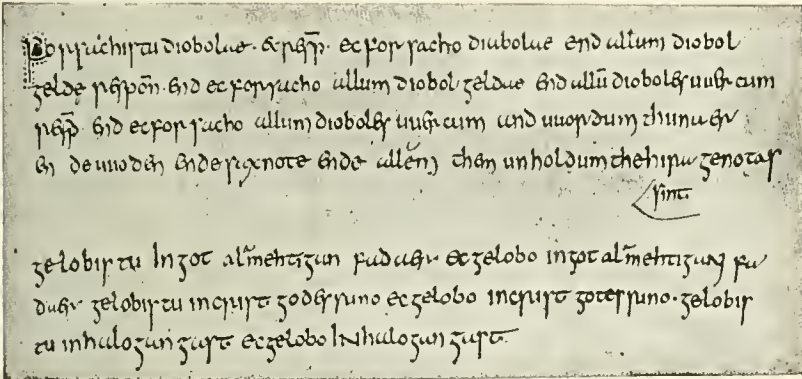 Forsachistu diobolae. & resp̄. ec forsacho diabolae end allum diobol
gelde respon̄. end ec forsacho allum diobol geldae end allū dioboles uuercum
resp̄ end ec forsacho allum dioboles uuercum and uuordum thunaer
en de uuoden ende saxnote ende allem them unholdum thehira genotas
sint
gelobistu in got alamehtigan fadaer ec gelobo in got alamehtigan fa
daer gelobistu in crist godes suno ec gelobo in crist gotes suno. gelobis
tu in halogan gast ec gelobo in halogan gast.